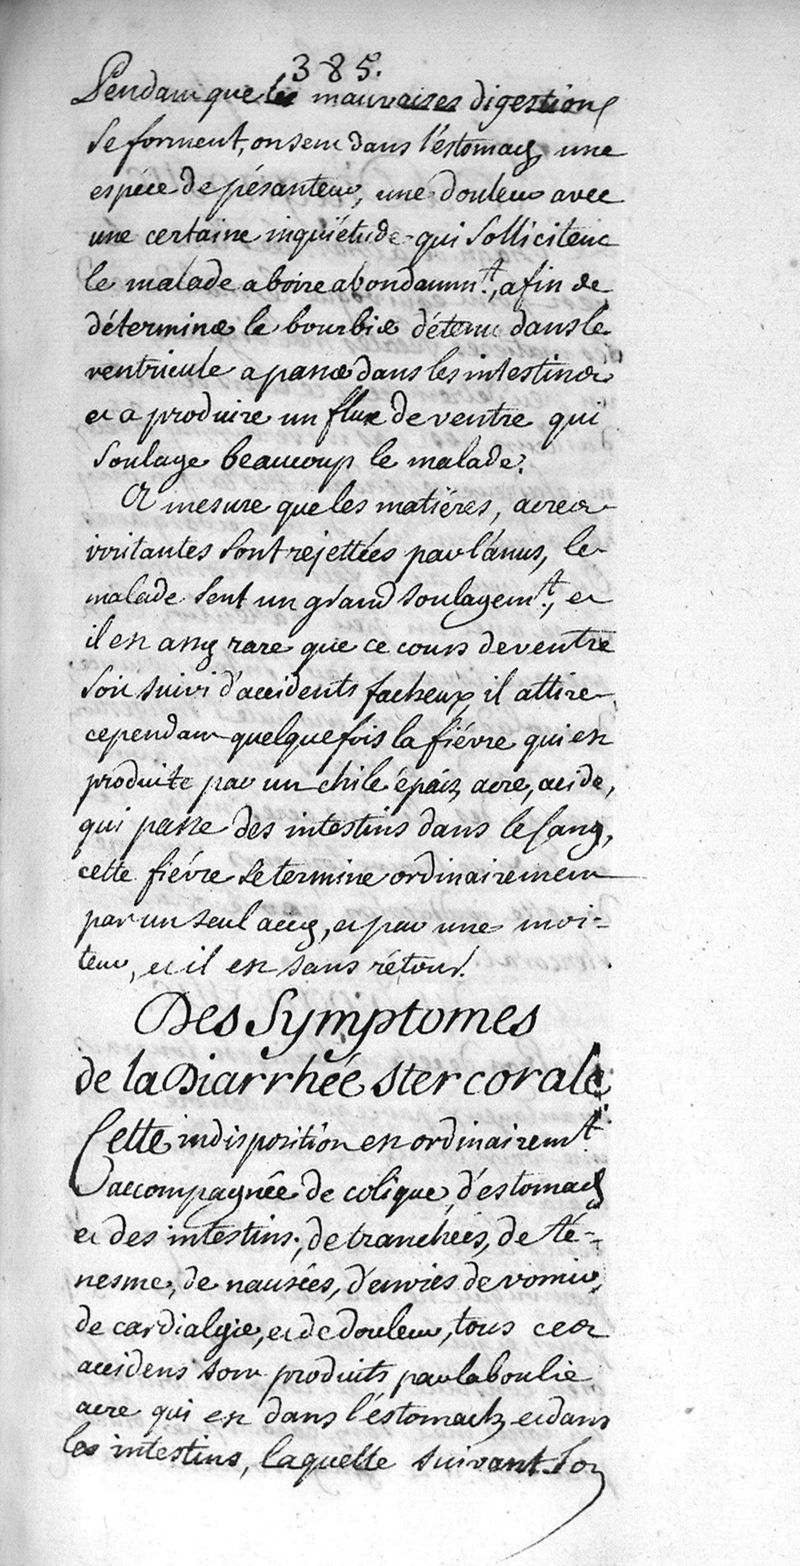 385.
Pendant que les mauvaises digestions
se forment, on sent dans l'éstomach une
espéce de pésanteur, une douleur avec
une certaine inquiétude qui sollicitent
le malade a boire abondamm.t, afin de
déterminer le bourbier détenu dans le
ventricule a passer dans les intestins
et a produire un flux de ventre qui
soulage beaucoup le malade.
A mesure que les matiéres, acres
irritantes sont rejettées par l'anus, le
malade sent un grand soulagem.t, et
il est assez rare que ce cours de ventre
soit suivi d'accidents facheux il attire
cependant quelquefois la fiévre qui est
produite par un chile épais, acre, acide,
qui passe des intestins dans le sang,
cette fiévre se termine ordinairement
par un seul accez, et par une moi-
teur, et il est sans rétour.
Des Symptomes
de la Diarrhée stercorale
Cette indisposition est ordinairem.t
accompagnée de colique, d'estomach
et des intestins, de tranchées, de té-
nesme, de nausées, d'envies de vomir,
de cardialgie, et de douleur, tous ces
accidens sont produits par la boulie
acre qui est dans l'éstomach et dans
les intestins, laquelle suivant son